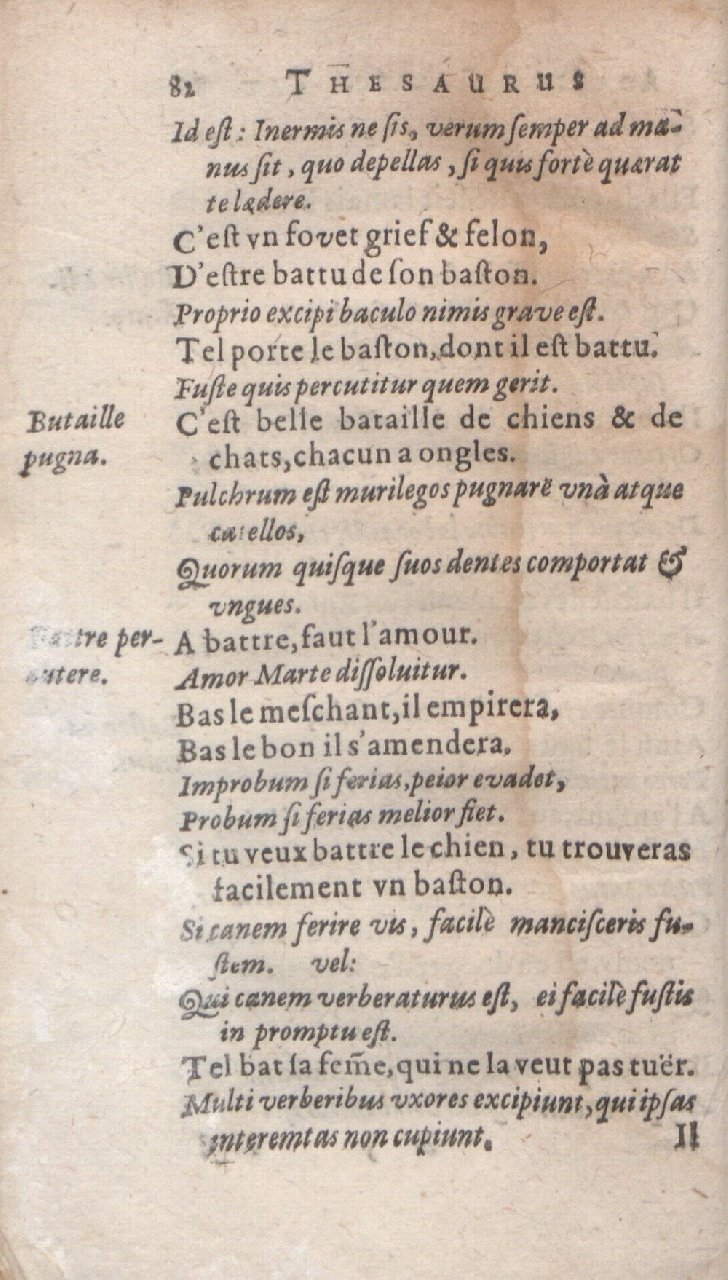 82 THESAURUS
Id eſt: Inermis ne ſis, verum ſemper ad ma-
nus ſit, quo depellas, ſi quis fortè quærat
te lædere.
C'eſt vn fovet grief & felon,
D'eſtre battu de ſon baſton.
Proprio excipi baculo nimis grave eſt.
Tel porte le baſton, dont il eſt battu.
Fuſte quis percutitur quem gerit.
Butaille
pugna.
C'eſt belle bataille de chiens & de
chats, chacun a ongles.
Pulchrum eſt murilegos pugnarē vnà atque
catellos,
Quorum quiſque ſuos dentes comportat &
vngues.
Battre per-
cutere.
A battre, faut l'amour.
Amor Marte diſſoluitur.
Bas le meſchant, il empirera,
Bas le bon il s'amendera.
Improbum ſi ferias, peior evadet,
Probum ſi ferias melior fiet.
Si tu veux battre le chien, tu trouveras
facilement vn baſton.
Si canem ferire vis, facilè manciſceris fu-
ſtem. vel:
Qui canem verberaturus eſt, ei facilè fuſtis
in promptu eſt.
Tel bat ſa fem̃e, qui ne la veut pas tuër.
Multi verberibus vxores excipiunt, qui ipſas
interemtas non cupiunt.
Il